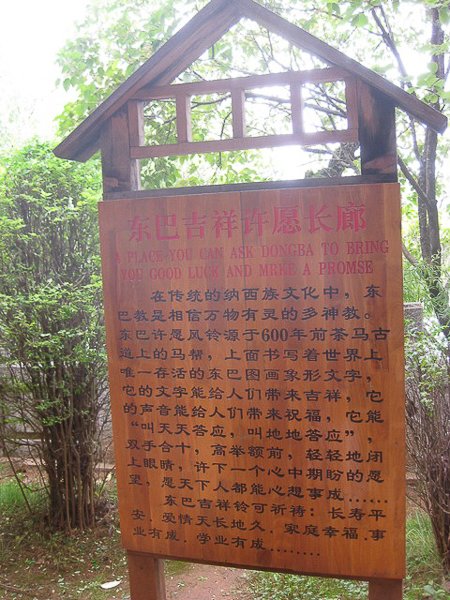 东巴吉祥许愿长廊
A PLACE YOU CAN ASK DONGBA TO BRING
YOU GOOD LUCK AND MRKE A PROMSE
在传统的纳西族文化中，东
巴教是相信万物有灵的多神教。
东巴许愿风铃源于600年前茶马古
道上的马帮，上面书写着世界上
唯一存活的东巴图画象形文字，
它的文字能给人们带来吉祥，它
的声音能给人们带来祝福，它能
“叫天天答应，叫地地答应”，
双手合十，高举额前，轻轻地闭
上眼睛，许下一个心中期盼的愿
望，愿天下人都能心想事成……
东巴吉祥铃可祈祷：长寿平
安．爱情天长地久．家庭幸福．事
业有成．学业有成………